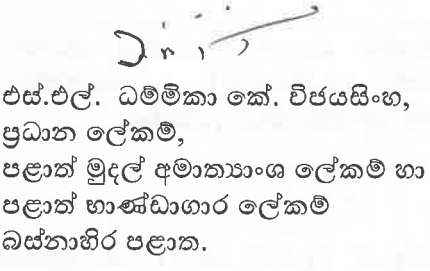 එස්.එල්. ධම්මිකා කේ. විජයසිංහ,
ප්‍රධාන ලේකම්,
පළාත් මුදල් අමාත්‍යාංශ ලේකම් හා
පළාත් භාණ්ඩාගාර ලේකම්
බස්නාහිර පළාත.